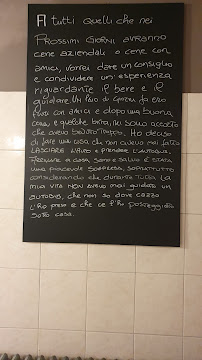 A tutti quelli che nei
Prossimi giorni avranno
cene aziendali o cene con
amici, vorrei dare un consiglio
e condividere un'esperienza
riguardante il bere e il
guidare. Un paio di giorni fa ero
fuori con amici e dopo una buona
cena, e qualche birra, mi sono accorto
che avevo bevuto troppo. Ho deciso
di fare una cosa che non avevo mai fatto
lasciare l'auto e prendere l'autobus.
Arrivare a casa sano e salvo è stata
una piacevole sorpresa, soprattutto
considerando che durante tutta la
mia vita non avevo mai guidato un
autobus, che non so dove cazzo
l'ho preso e che ce l'ho posteggiato
sotto casa.